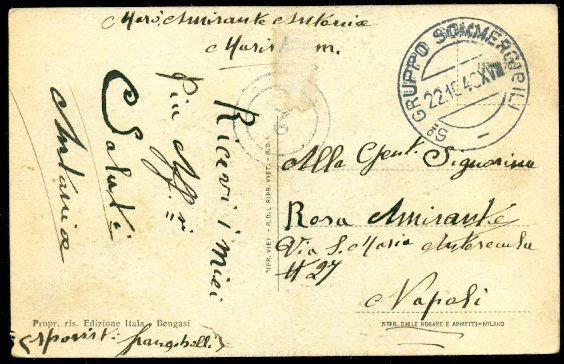 Marò Amirante Antonio
Marist m.
5º GRUPPO SOMMERGIBILI
22.10.40 XVIII
Ricevi i Miei
Più Aff.ti
Saluti
Antonio
Alla Gent. Signorina
Rosa Amirante
Via S. Maria
N 27
Napoli
RIPR. VIET. - R.D.L. RIPR. VIET. - R.D.L.
Propr. ris. Edizione Itala - Bengasi
STAB. DALLE NOGARE E ARMETTI-MILANO